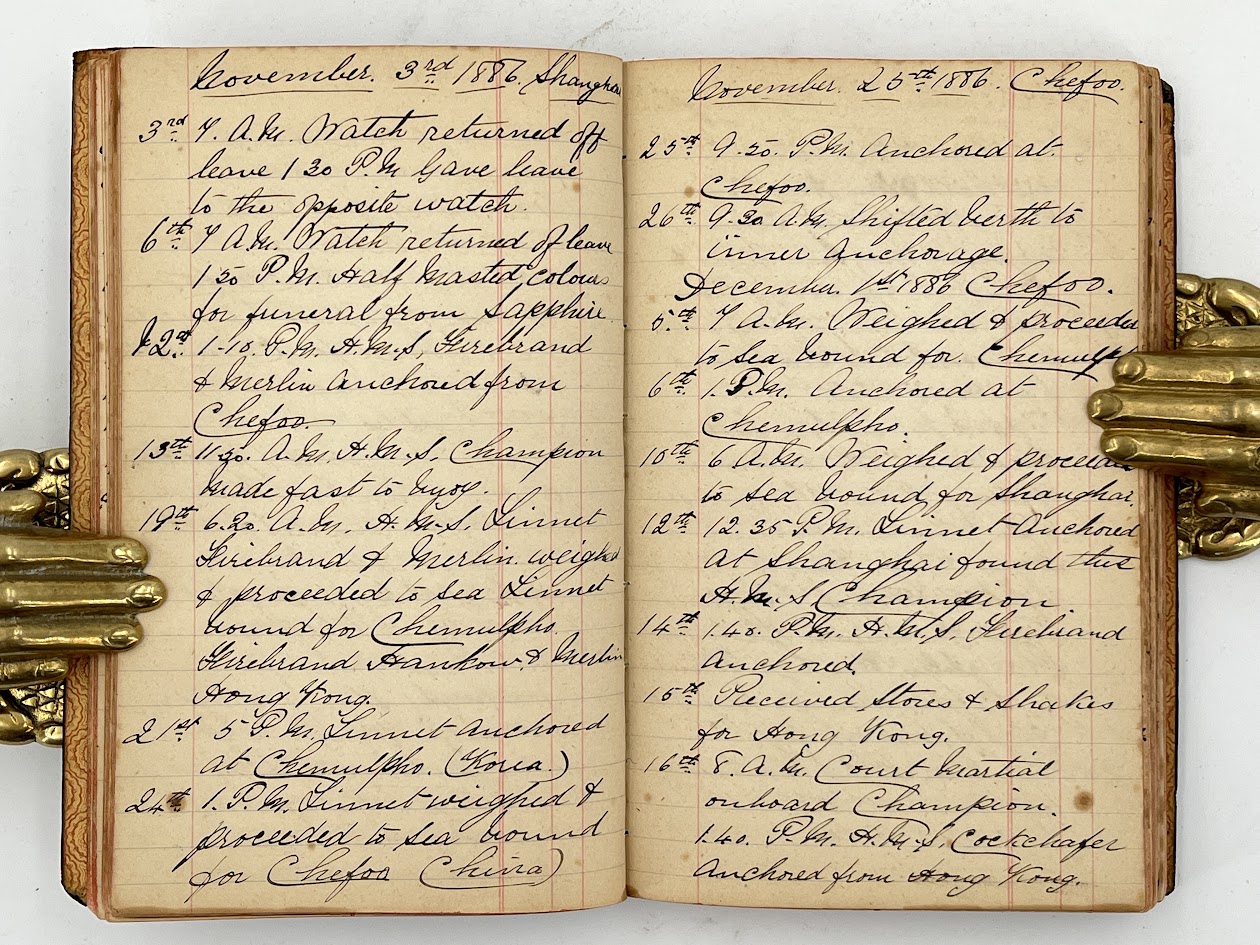 November. 3rd 1886. Shanghai
3rd 7. A.M. Watch returned off
leave 1 30 P.M Gave leave
to the opposite watch.
6th 7 A.M. Watch returned of leave
1 30 P.M. Half Masted colours
for funeral from Sapphire.
12th 1-10. P.M. H.M.S, Firebrand
& Merlin anchored from
Chefoo.
13th 11 30. A.M. H.M.S. Champion
made fast to buoy.
19th 6.20. A.M. H.M.S. Linnet
Firebrand & Merlin. weighed
& proceeded to sea Linnet
bound for Chemulpho.
Firebrand Hankow. & Merlin
Hong Kong.
21st 5 P.M. Linnet anchored
at Chemulpho. (Korea.)
24th 1. P.M. Linnet weighed &
proceeded to sea bound
for Chefoo China)
November. 25th 1886. Chefoo.
25th 9-50. P.M. Anchored at.
Chefoo.
26th 9-30 A.M. Shifted berth to
inner anchorage.
December. 1st 1886 Chefoo.
5th 7 A.M. Weighed & proceeded
to sea bound for. Chemulp
6th 1. P.M. Anchored at
Chemulpho.
10th 6 A.M. Weighed & proceeded
to sea bound for Shanghai.
12th 12.35 P.M. Linnet Anchored
at Shanghai found this
H.M.S. Champion.
14th 1.40. P.M. H.M.S. Firebrand
anchored.
15th Received Stores &
for Hong Kong.
16th 8. A.M. Court Martial
onboard Champion.
1.40. P.M. H.M.S. Cockchafer
Anchored from Hong Kong.